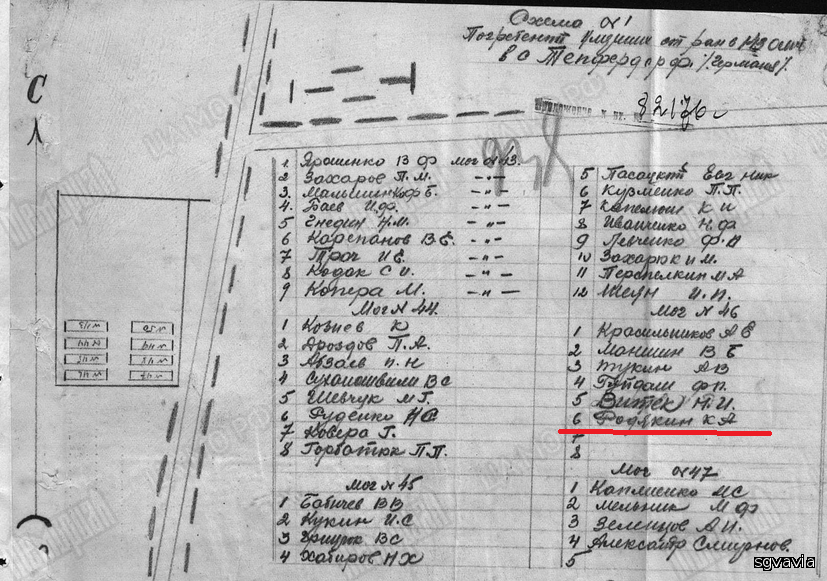 Схема №1
Погребения умерших от ран в
в о Тепфердорф /Германия/.
Приложение к вх. № 82176с
С
1. Ярошенко В Ф мог №43.
2 Захаров П.М. -"-
3. -"-
4. Баев И.Ф. -"-
5 Гнедин Н.М. -"-
6 Карспанов В.Е. -"-
7 Трач И Е. -"-
8 Кодак С И. -"-
9 Копера М. -"-
Мог № 44.
1 Козиев К
2 Дроздов П.А.
3 Абзаев П.Н
4 Сухашвили В С
5 Шевчук М Г.
6 Руденко Н С
7 Ковера Г.
8 Горбатюк П П.
Мог № 45
1 Бабичев В В
2 Кукин И.С
3 Грицюк В С
4 Хатиров Н Х
5 Пасацкий Евг Ник
6 Кузменко П.П.
7 Капелюш К И
8 Иванченко Н.Ф
9 Левченко Ф.А
10 Захарюк И.М.
11 Перепелкин М А
12 И.П.
Мог № 46
1 Красильников А Е
2 Маншин В Б
3 Пукин А В
4 Гайдаш Ф П.
5 Витек Н.И.
6 Родякин К А
7
8
Мог №47
1 Каплиенко И С
2 Мельник М Ф
3 Зеленцов А И.
4 Александр Смирнов.
5
sgvavia